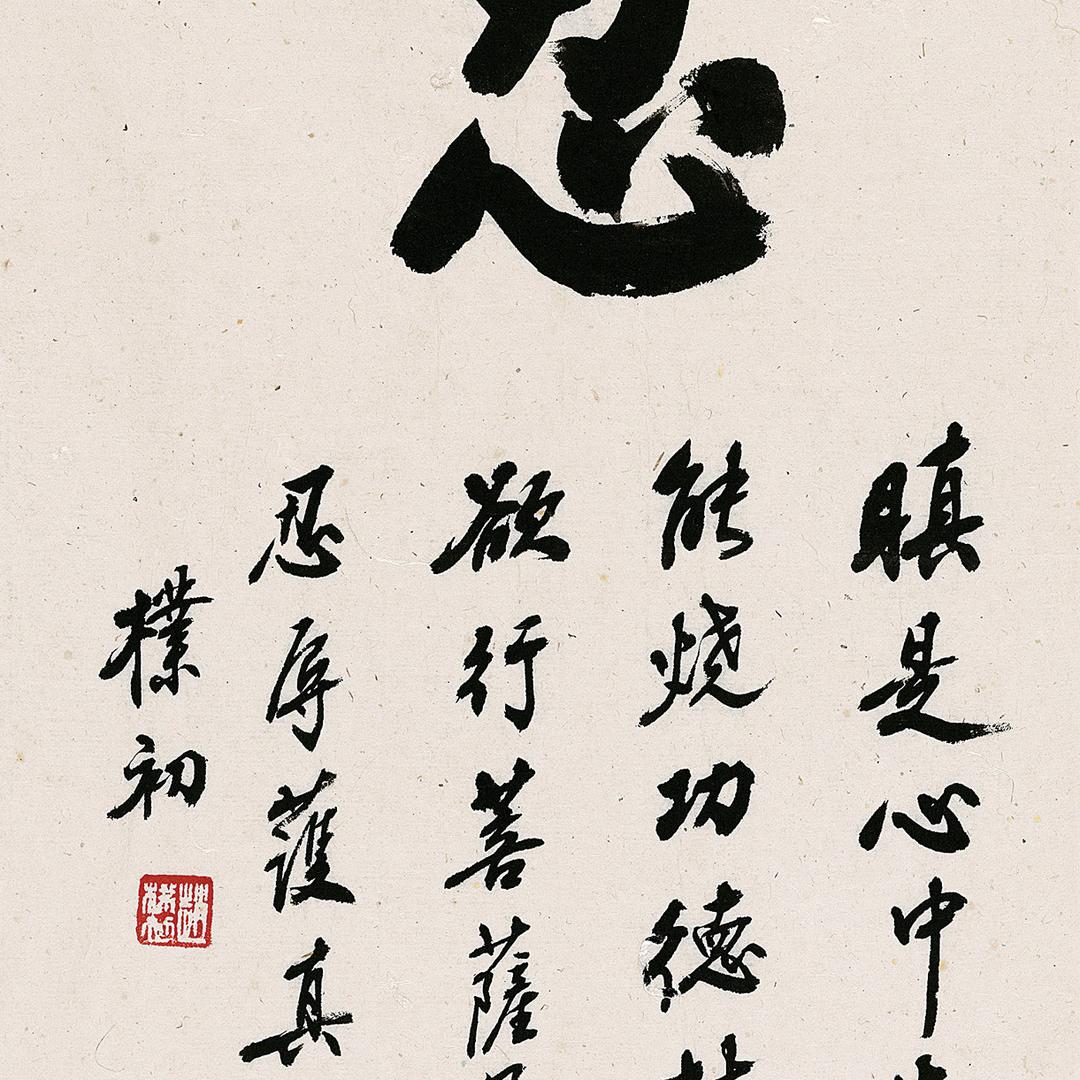 忍
瞋是心中
能燒功德
欲行菩薩
忍辱護真
樸初